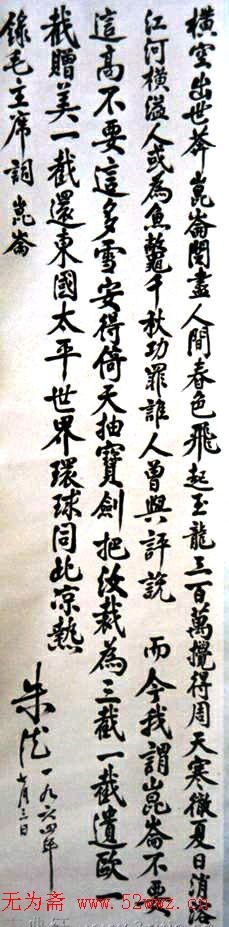 橫空出世莽崑崙閱盡人間春色飛起玉龍三百萬攪得周天寒徹夏日消溶
江河橫溢人或為魚鱉千秋功罪誰人曾與評說 而今我謂崑崙不要
這高不要這多雪安得倚天抽寶劍把汝裁為三截一截遺歐一
截贈美一截還東國太平世界環球同此凉熱
錄毛主席詞崑崙
朱德 一九六四年
七月三日
无为斋 www.52wwz.cn